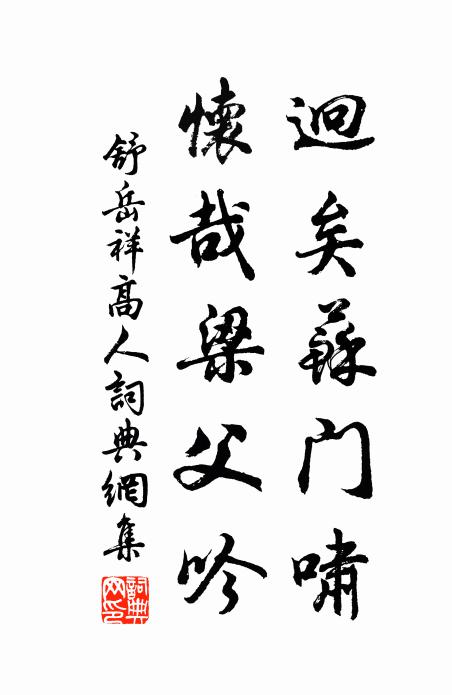 迥矣蘇门嘯
懷哉梁父吟
舒岳祥高人詞典網集
詞典网印